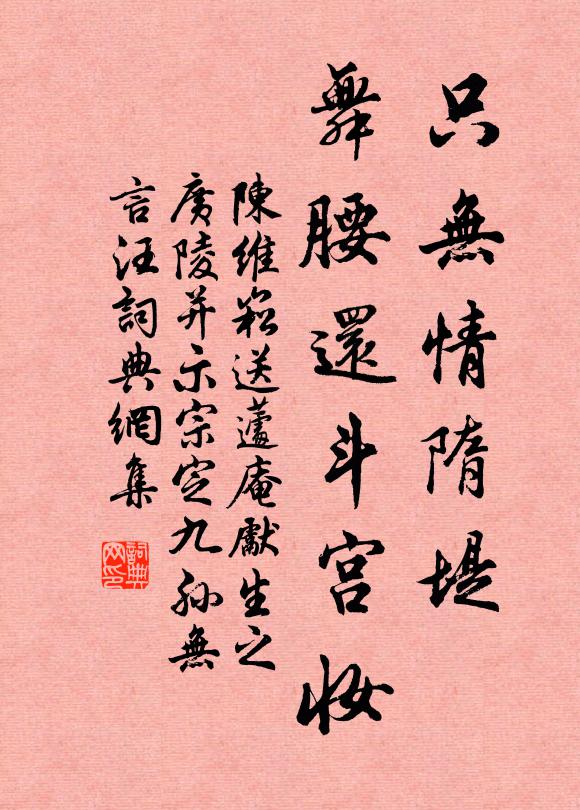 只無情隋堤
舞腰還斗宮妝
陳維崧送蘧庵獻生之
廣陵并示宗定九孙無
言汪詞典網集
詞典网印